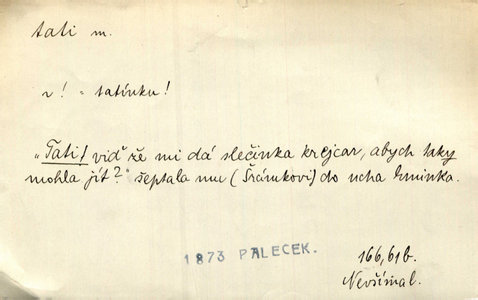 tati m.
v! = tatínku!
„Tati! viď že mi dá slečinka krejcar, abych taky
mohla jít?" šeptala mu (Srámkovi) do ucha Eminka.
1873 PALECEK.
166,61b.
Nevšímal.